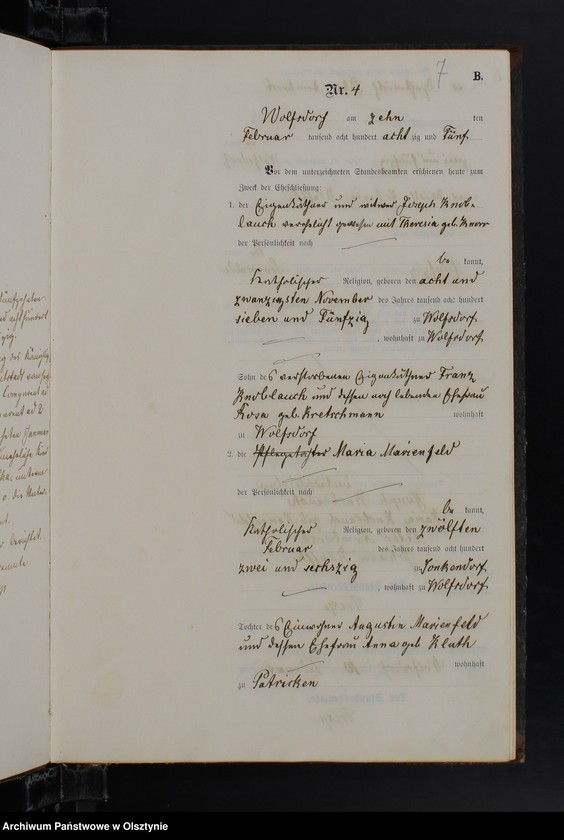 7
B.
Nr. 4
Wolfsdorf am zehn ten
Februar tausend acht hundert achtzig und Fünf.
Vor dem unterzeichneten Standesbeamten erschienen heute zum
Zweck der Eheschließung:
1. der Eigenkäthner und witwer Joseph Knob-
lauch verehelicht gewesen mit Theresia geb. Knorr
der Persönlichkeit nach
be kannt,
Katholischer Religion, geboren den acht und
zwanzigsten November des Jahres tausend acht hundert
sieben und Fünfzig zu Wolfsdorf
, wohnhaft zu Wolfsdorf.
Sohn des verstorbenen Eigenkäthner Franz
Knoblauch und dessen noch lebenden Ehefrau
Rosa geb. Kretschmann wohnhaft
zu Wolfsdorf
2. die Pflegetochter Maria Marienfeld
der Persönlichkeit nach
be kannt,
Katholischer Religion, geboren den zwölften
Februar des Jahres tausend acht hundert
zwei und sechszig zu Jonkendorf.
, wohnhaft zu Wolfsdorf.
Tochter des Einwohner Augustin Marienfeld
und dessen Ehefrau Anna geb Kluth
wohnhaft
zu Patricken
Archiwum Państwowe w Olsztynie